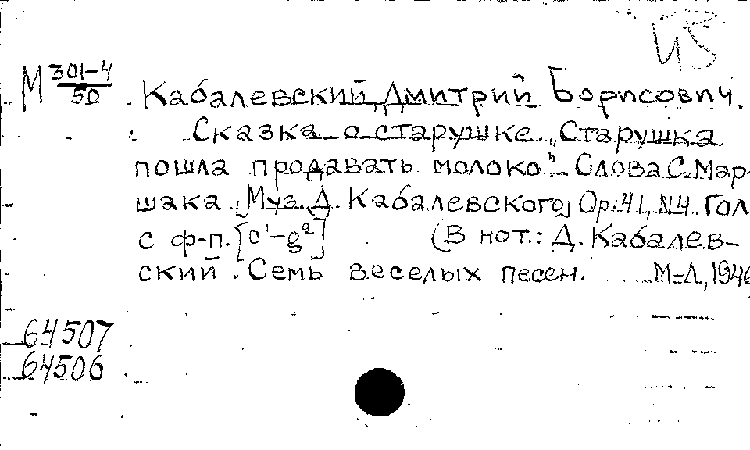 М 301-4/50 Кабалевский, Дмитрий Борисович.
Сказка о старушке. „Старушка
пошла продавать молоко". Слова С. Мар-
шака. [Муз. Д. Кабалевского] Ор. 41, №4. Гол.
с ф-п. [c¹-g²] (В нот.: Д. Кабалев-
ский. Семь веселых песен. М-Л, 1946
64507
64506